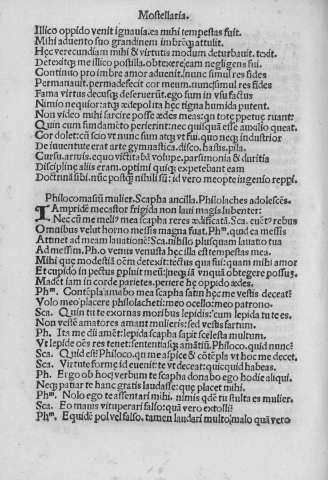 Mostellaria.
Illico oppido venit ignauia. ea mihi tempestas fuit.
Mihi aduento suo grandinem imbreq; attulit.
Hec verecundiam mihi & virtutis modum deturbauit. texit.
Detexitq; me illico postilla. obtexere eam neglegens fui.
Continuo pro imbre amor aduenit. nunc simul res fides
Permanauit. permadefecit cor meum. nunc simul res fides
Fama virtus decusq; deseruerūt. ego sum in vsu factus
Nimio nequior: atq; ædepol ita hęc tigna humida putent.
Non video mihi sarcire posse ædes meas: qn totę ppetuę ruant
Quin cum fundamēto perierint: nec quisquā esse auxilio queat.
Cor dolet: cū scio vt nunc sum atq; vt fui. quo neq; industrior
De iuuentute erat arte gymnastica. disco. hastis. pila.
Cursu. armis. equo victitabā volupe. parsimonia & duritia
Discipline aliis eram. optimi quiq; expetebant eam
Doctrinā sibi. nūc postq̄ nihili sū: id vero meopte ingenio reppi.
Philocomasiū mulier. Scapha ancilla. Philolaches adolescēs.
IAmpridē mecastor frigida non laui magis lubenter:
Nec cū me meli⁹ mea scapha reres æxificatā. Sca. euēt⁹ rebus
Omnibus velut horno messis magna fuit. Phᵐ. quid ea messis
Attinet ad meam lauationē? Sca. nihilo plusquam lauatio tua
Ad messim. Ph. o venus venusta hęc illa est tempestas mea.
Mihi que modestiā oēm detexit: tectus qua fui: quam mihi amor
Et cupido in pectus ppluit meū: neq; iā vnquā obtegere possū.
Madēt iam in corde parietes. periere hę oppido ædes.
Phᵐ. Contēpla amabo mea scapha satin hęc me vestis deceat?
Volo meo placere philolacheti: meo ocello: meo patrono.
Sca. Quin tu te exornas moribus lepidis: cum lepida tu te es.
Non vestē amatores amant mulieris: sed vestis fartum.
Ph. Ita me dii amēt: lepida scapha sapit scelesta multum.
Vt lepide oēs res tenet: sententiasq; amātiū. Philoco. quid nunc?
Sca. Quid est? Philoco. qn me aspice & cōtēpla vt hoc me decet.
Sca. Virtute formę id euenit: te vt deceat: quicquid habeas.
Ph. Ergo ob hoc verbum te scapha donabo ego hodie aliqui.
Neq; patiar te hanc gratis laudasse: que placet mihi.
Phᵐ. Nolo ego te assentari mihi. nimis qdē tu stulta es mulier.
Sca. Eo manis vituperari falso: quā vero extolli?
Phᵐ. Equidē pol vel falso. tamen laudari multo: malo quā vero